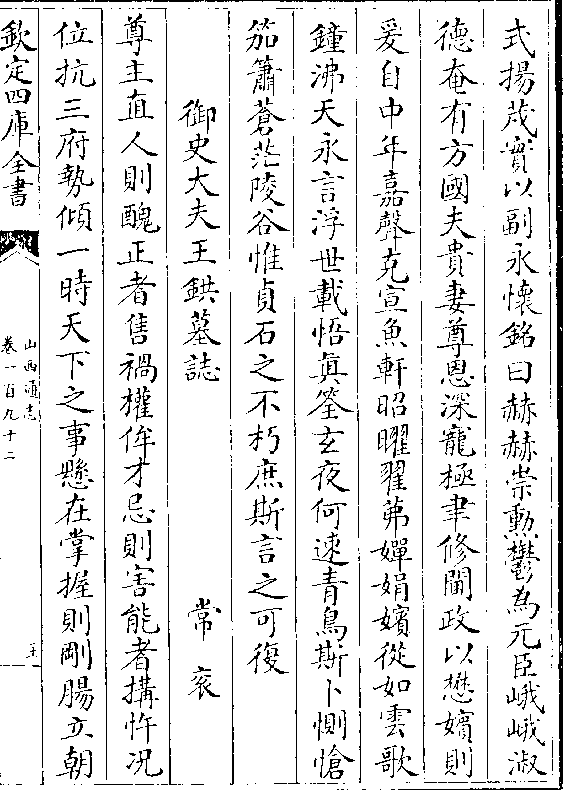 式揚茂實以副永懷銘曰赫赫崇勲鬱為元臣峨峨淑
德奄有方國夫貴妻尊恩深寵極聿修閫政以懋嬪則
爰自中年嘉聲克宣魚軒昭曜翟茀嬋娟嬪從如雲歌
鐘沸天永言浮世載悟真筌玄夜何速青鳥斯卜惻愴
笳簫蒼茫陵谷惟貞石之不朽庶斯言之可復
御史大夫王鉷墓誌 常衮
尊主直人則醜正者售禍權侔才忌則害能者搆忤况
位抗三府勢傾一時天下之事懸在掌握則剛腸立朝
欽定四庫全書
山西通志
卷一百九十二